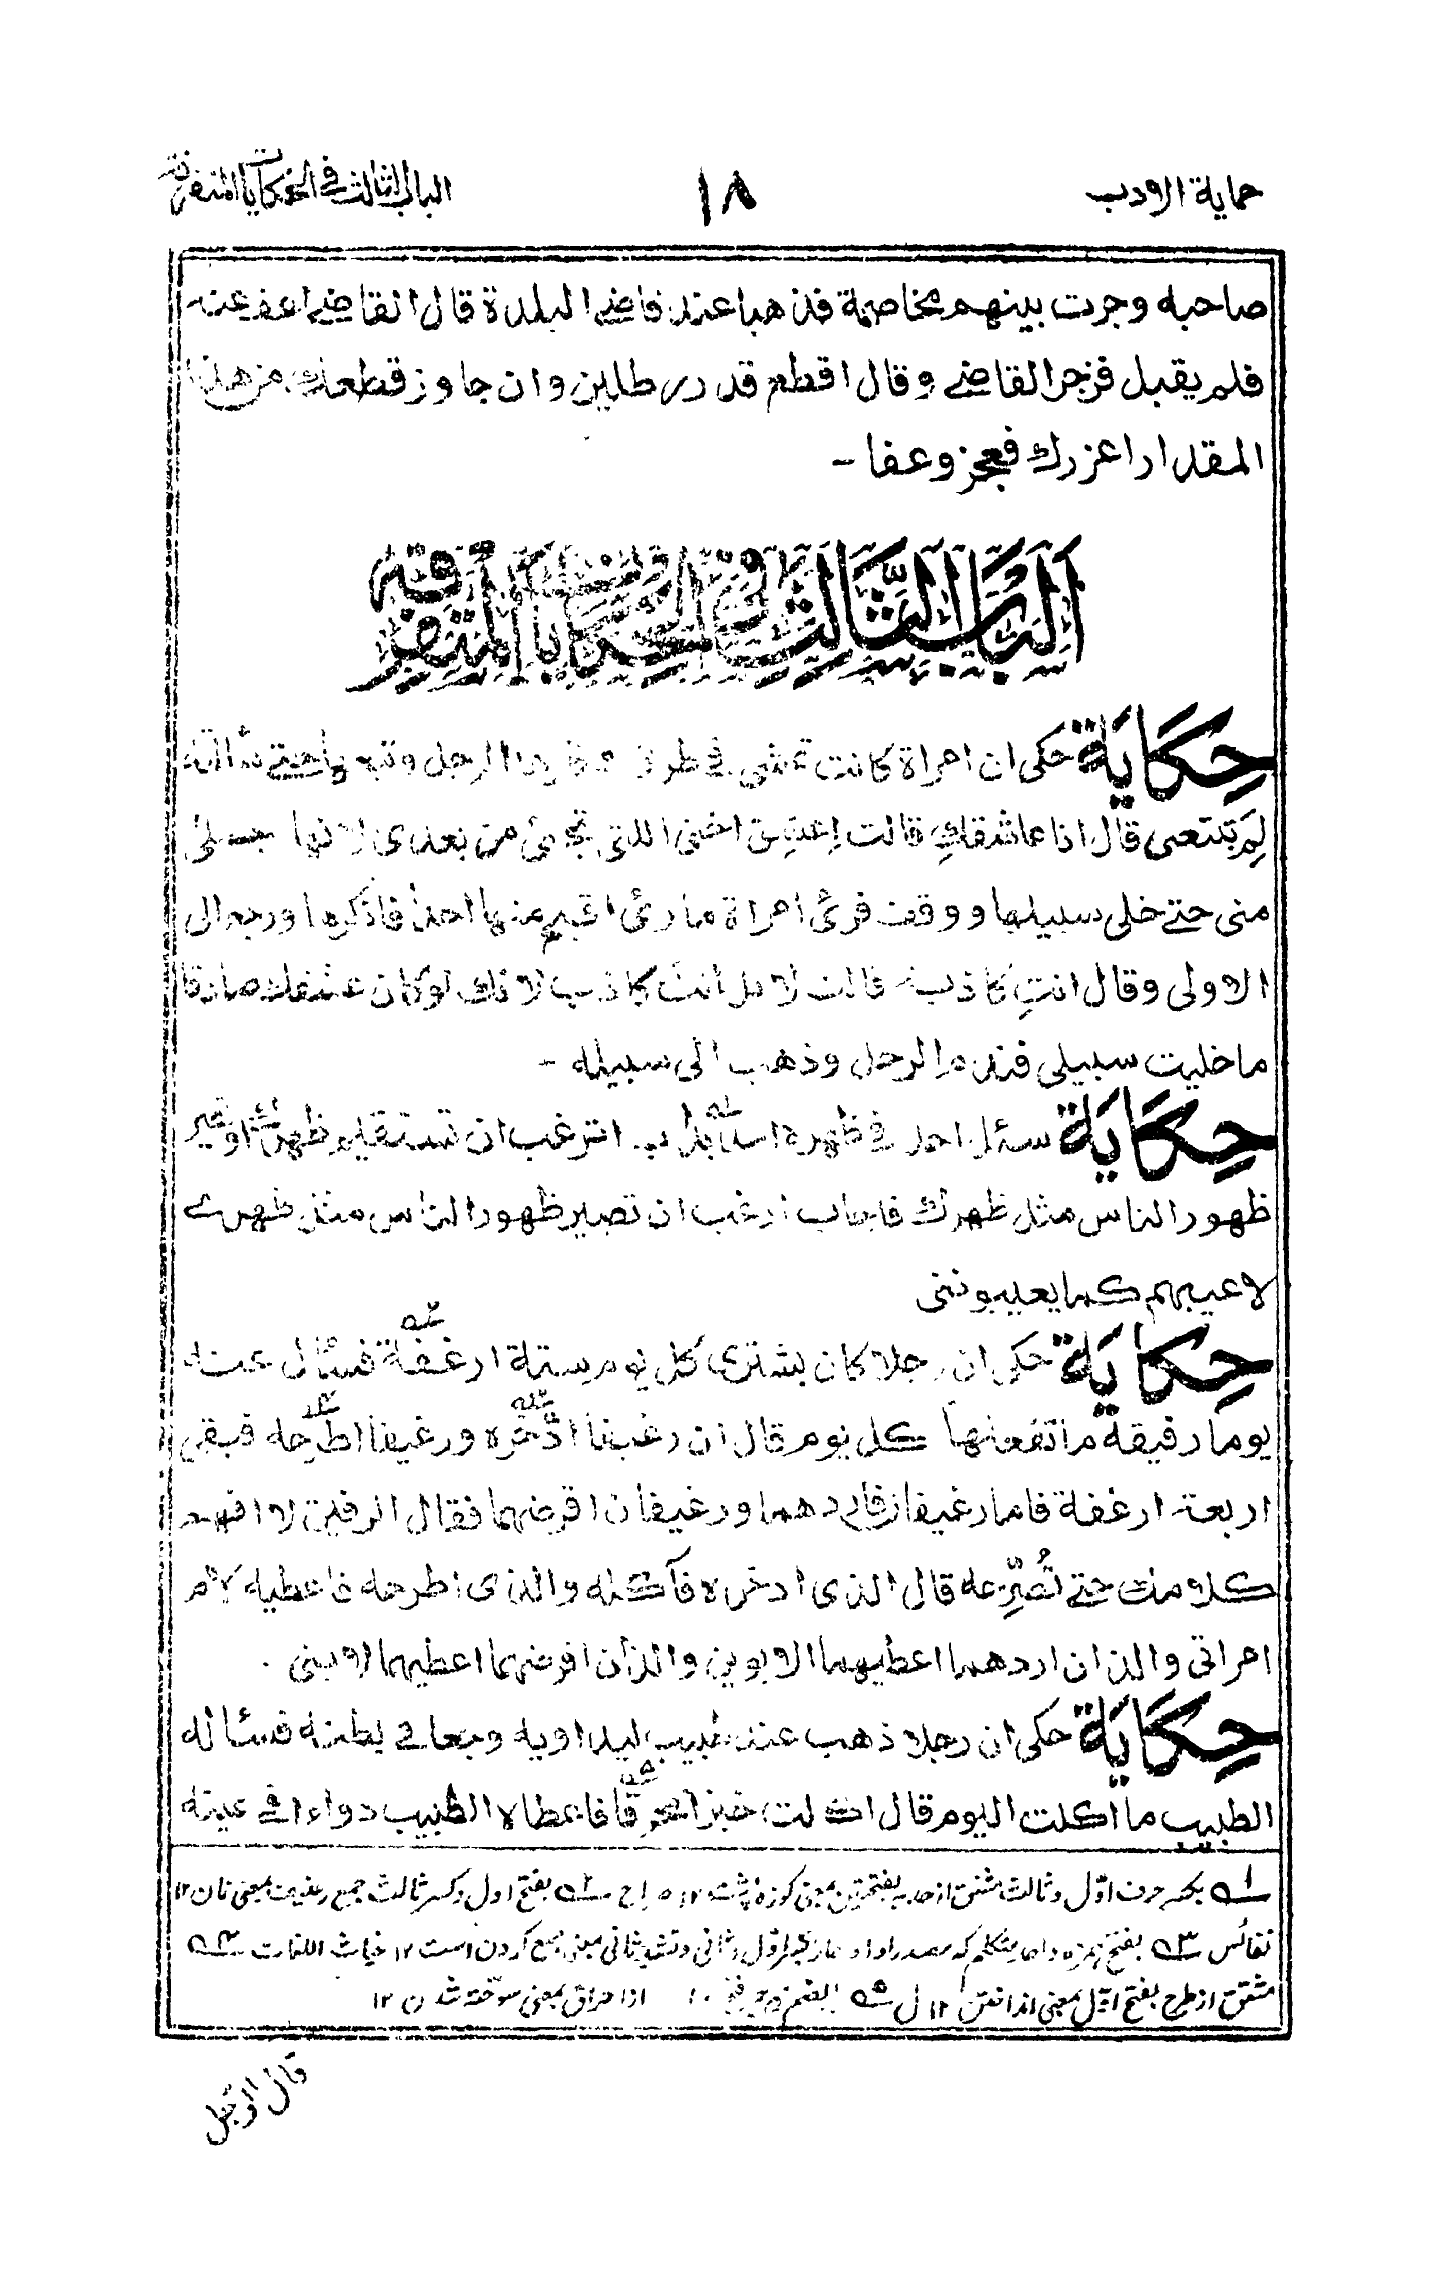 حماية الادب
١٨
الباب الثالث في الحكايات المتفرقة
صاحبه وجرت بينهم مخاصمة فذهبا عند قاضي البلدة قال القاضي اعف عنه
فلم يقبل فزجر القاضي وقال اقطع قدر رطلين وان جاوز قطعك من هذا
المقدار اعزرك فعجز وعفا -
اَلْبَابُ الثَّالِثُ فِي الْحِكَايَاتِ الْمُتَفَرِّقَةِ
حِكَايَة حكى ان امراة كانت تمشي في طرق الرجل حتى سألته
لِمَ تتبعنى قال انا عاشقكِ قالت اختى اللتي تجئ من بعدى لانها
منى حتى خلى سبيلها ووقف فرئ امراة ما رئ اقبح منها احدا فاذكرها ورجع الى
الاولى وقال انتِ كاذبة قالت لا بل انتَ كاذب لانك لو كان عشقك صادقا
ما خليت سبيلى فندم الرجل وذهب الى سبيله -
حِكَايَة سئل احد في ظهره اترغب ان تستقيم ظهرك او تصير
ظهور الناس مثل ظهرك فاجاب ارغب ان تصير ظهور الناس مثل ظهرے
لاعيبهم كما يعيبوننى
حِكَايَة حكى ان رجلا كان يشترى كل يوم ستة ارغفة فسئال عنه
يوما رفيقة ما تفعلنها كل يوم قال ان رغيفا ادّخره ورغيفا اطرحه فبقى
اربعة ارغفة فاما رغيفان فاردهما ورغيفان اقرضهما فقال الرفيق لا افهم
كلامك حتے تُصّرِحه قال الذى ادخره فآكله والذى اطرحه فاعطيه لام
امراتى والذان اردهما اعطيهما الابوين والذان اقرضهما اعطيهما لابنى .
حِكَايَة حكى ان رجلا ذهب عند طبيب ليداويه وجعا في بطنه فسئاله
الطبيب ما اكلت اليوم قال اكلت خبزا محرقا فاعطاه الطبيب دواء في عينه
١ بكسر حرف اوّل وثالث مشتق از حدب بفتحتين بمعنى كوزه پشت ١٢ ٢ بفتح اول وكسر ثالث جمع رغيف بمعنى نان ١٢
نفائس ٣ بفتح همزه متكلم كه مصدر او ادخار بكسر اوّل ثانى وتشديد ثانى بمعنى جمع كردن است ١٢ غياث اللغات ٤
مشتق از طرح بفتح اوّل بمعنى انداختن ١٢ ل ٥ از احراق بمعنى سوخته شدن ١٢
قال الرجل